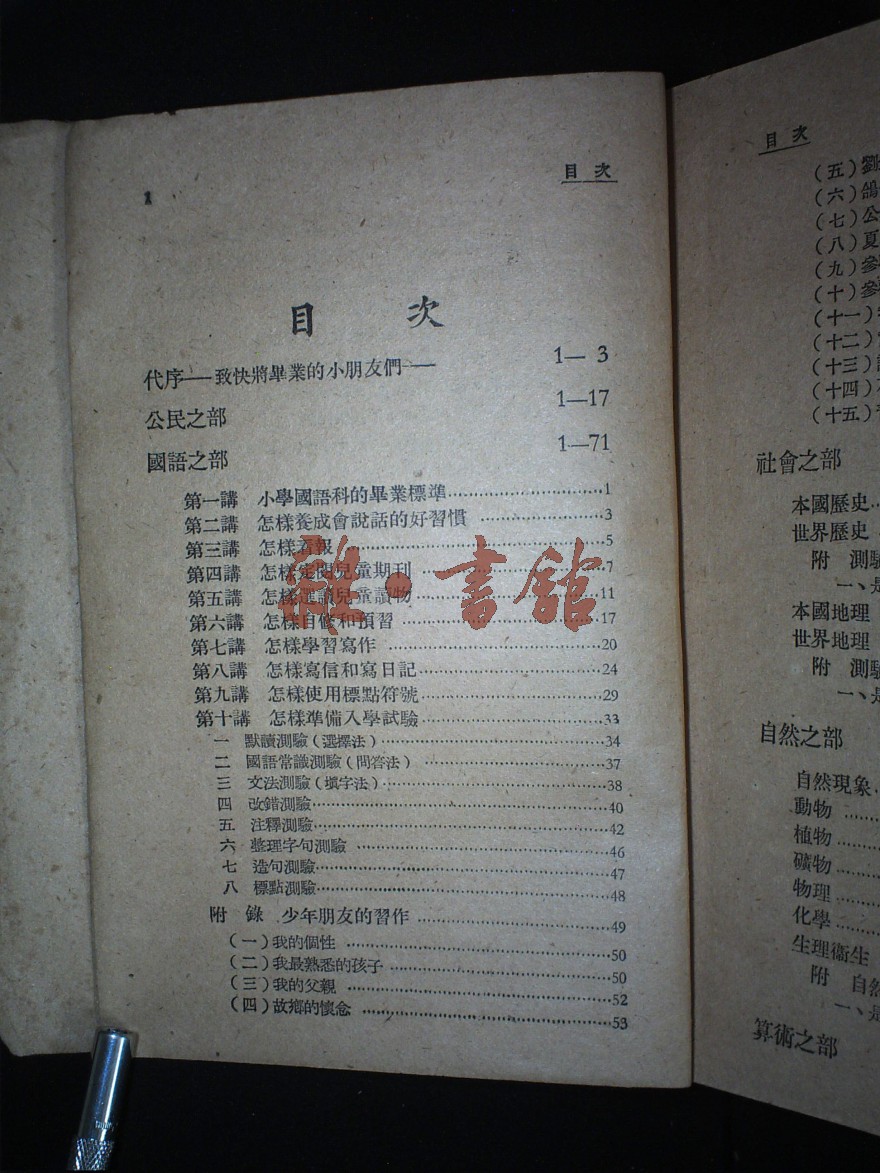 1
目 次
目 次
代序——致快將畢業的小朋友們—— 1—3
公民之部 1—17
國語之部 1—71
第一講 小學國語科的畢業標準 1
第二講 怎樣養成會說話的好習慣 3
第三講 怎樣看報 5
第四講 怎樣定閱兒童期刊 7
第五講 怎樣選讀兒童讀物 11
第六講 怎樣自修和預習 17
第七講 怎樣學習寫作 20
第八講 怎樣寫信和寫日記 24
第九講 怎樣使用標點符號 29
第十講 怎樣準備入學試驗 33
一 默讀測驗(選擇法) 34
二 國語常識測驗(問答法) 37
三 文法測驗(填字法) 38
四 改錯測驗 40
五 注釋測驗 42
六 整理字句測驗 46
七 造句測驗 47
八 標點測驗 48
附 錄 少年朋友的習作 49
(一)我的個性 50
(二)我最熟悉的孩子 50
(三)我的父親 52
(四)故鄉的懷念 53
雜·書館
目 次
(五)劉
(六)鴿
(七)公
(八)夏
(九)參
(十)參
(十一)
(十二)
(十三)
(十四)
(十五)
社會之部
本國歷史
世界歷史
附 測驗
一、是
本國地理
世界地理
附 測驗
一、是
自然之部
自然現象
動物
植物
礦物
物理
化學
生理衞生
附 自然
一、是
算術之部